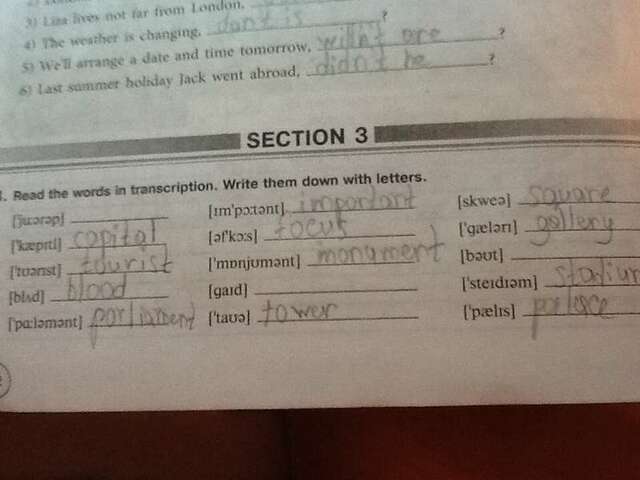 3) Liza lives not far from London,
4) The weather is changing, don't is ?
5) We'll arrange a date and time tomorrow, willn't are ?
6) Last summer holiday Jack went abroad, didn't he ?
SECTION 3
1. Read the words in transcription. Write them down with letters.
['jʊərəp] [ɪm'pɔːtənt] important [skweə] square
['kæpɪtl] capital [əf'kɔːs] focus ['gælərɪ] gallery
['tʊərɪst] tourist ['mɒnjʊmənt] monument [bəʊt]
[blʌd] blood [gaɪd] ['steɪdɪəm] stadium
['pɑːləmənt] parliament ['taʊə] tower ['pælɪs] pelace